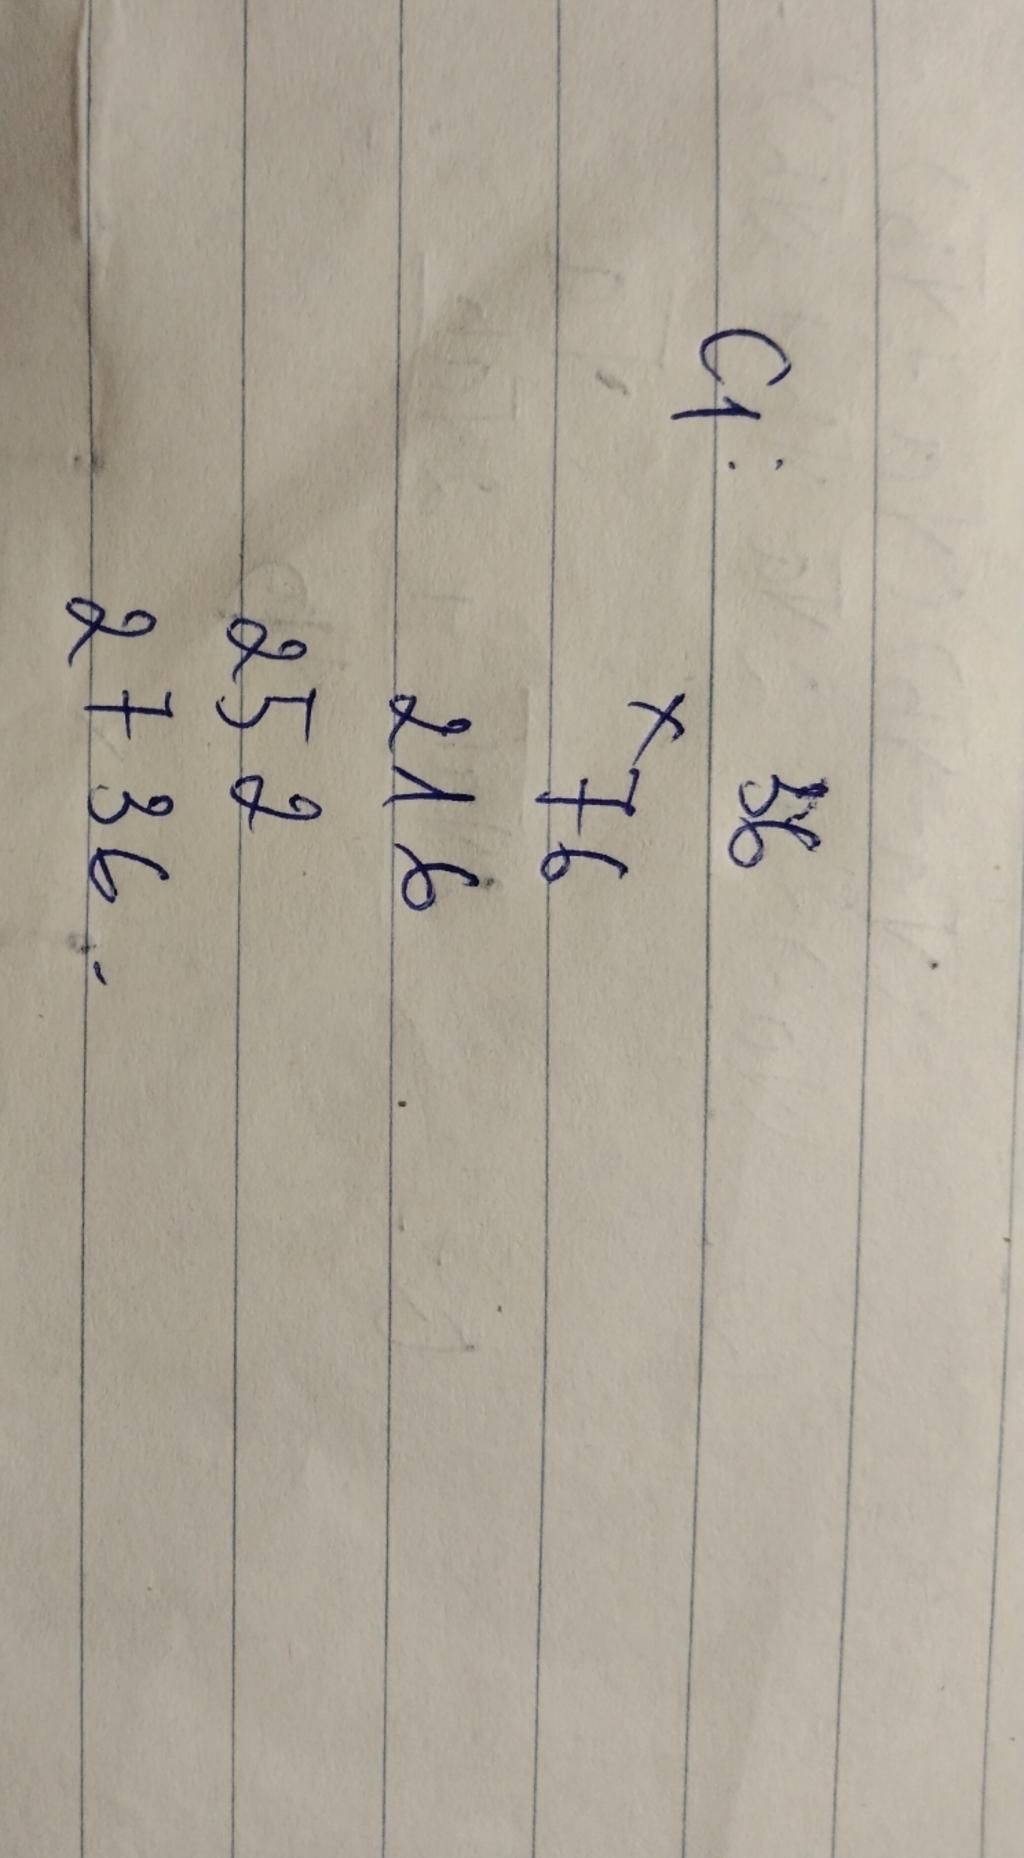 C1: 36
x 76
216
252
2736.